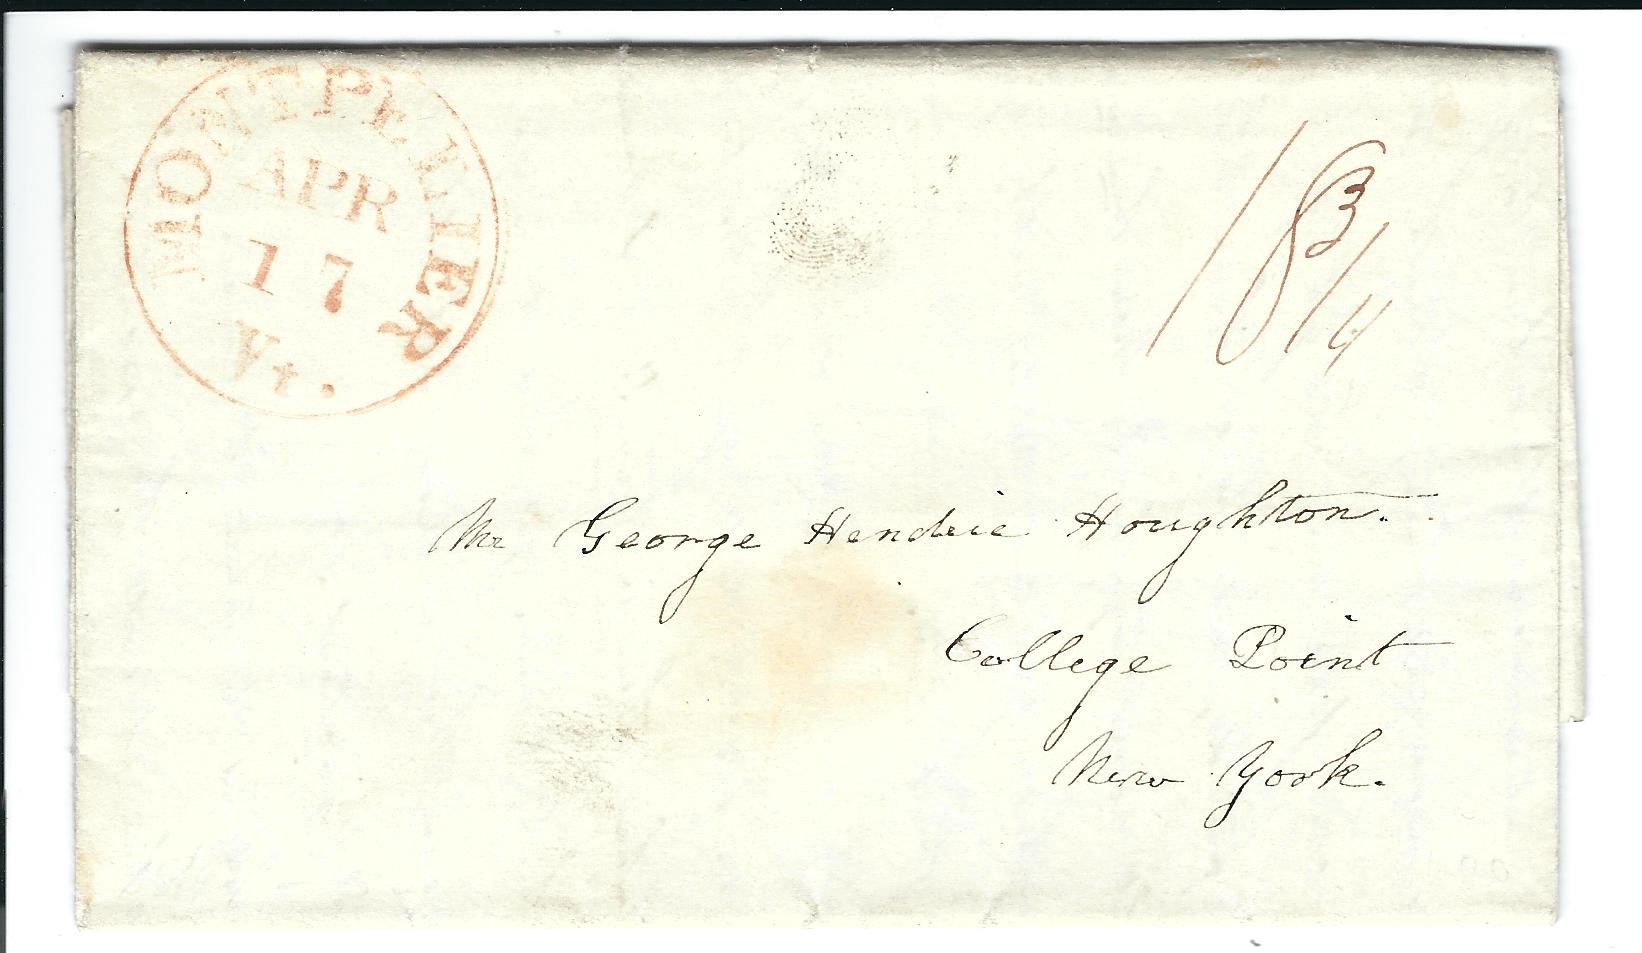 MONTPELIER
APR
17
Vt.
18 3/4
Mr George Hendric Houghton.
College Point
New York.